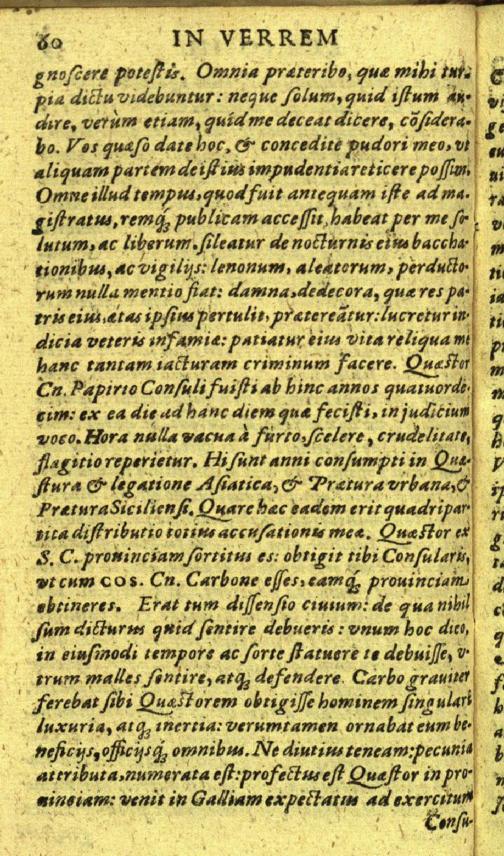 60 IN VERREM
gnoscere potestis. Omnia præteribo, quæ mihi tur-
pia dictu videbuntur: neque solum, quid istum au-
dire, verùm etiam, quid me deceat dicere, cōsidera-
bo. Vos quæso date hoc, & concedite pudori meo, vt
aliquam partem de istius impudentia reticere possim.
Omne illud tempus, quod fuit antequam iste ad ma-
gistratus, remq; publicam accessit, habeat per me so-
lutum, ac liberum. sileatur de nocturnis eius baccha-
tionibus, ac vigilijs: lenonum, aleatorum, perducto-
rum nulla mentio fiat: damna, dedecora, quæ res pa-
tris eius, ætas ipsius pertulit, prætereātur: lucretur in-
dicia veteris infamiæ: patiatur eius vita reliqua me
hanc tantam iacturam criminum facere. Quæstor
Cn. Papirio Consuli fuisti ab hinc annos quatuorde-
cim: ex ea die ad hanc diem quæ fecisti, in judicium
voco. Hora nulla vacua à furto, scelere, crudelitate,
flagitio reperietur. Hi sunt anni consumpti in Quæ-
stura & legatione Asiatica, & Prætura vrbana, &
Prætura Siciliensi. Quare hæc eadem erit quadripar-
tita distributio totius accusationis meæ. Quæstor ex
S. C. prouinciam sortitus es: obtigit tibi Consularis,
vt cum COS. Cn. Carbone esses, eamq; prouinciam
obtineres. Erat tum dissensio ciuium: de qua nihil
sum dicturus quid sentire debueris: vnum hoc dico,
in eiusmodi tempore ac sorte statuere te debuisse, v-
trum malles sentire, atq; defendere. Carbo grauiter
ferebat sibi Quæstorem obtigisse hominem singulari
luxuria, atq; inertia: verumtamen ornabat eum be-
neficijs, officijsq; omnibus. Ne diutius teneam: pecunia
attributa, numerata est: profectus est Quæstor in pro-
uinciam: venit in Galliam expectatus ad exercitum
Consu-